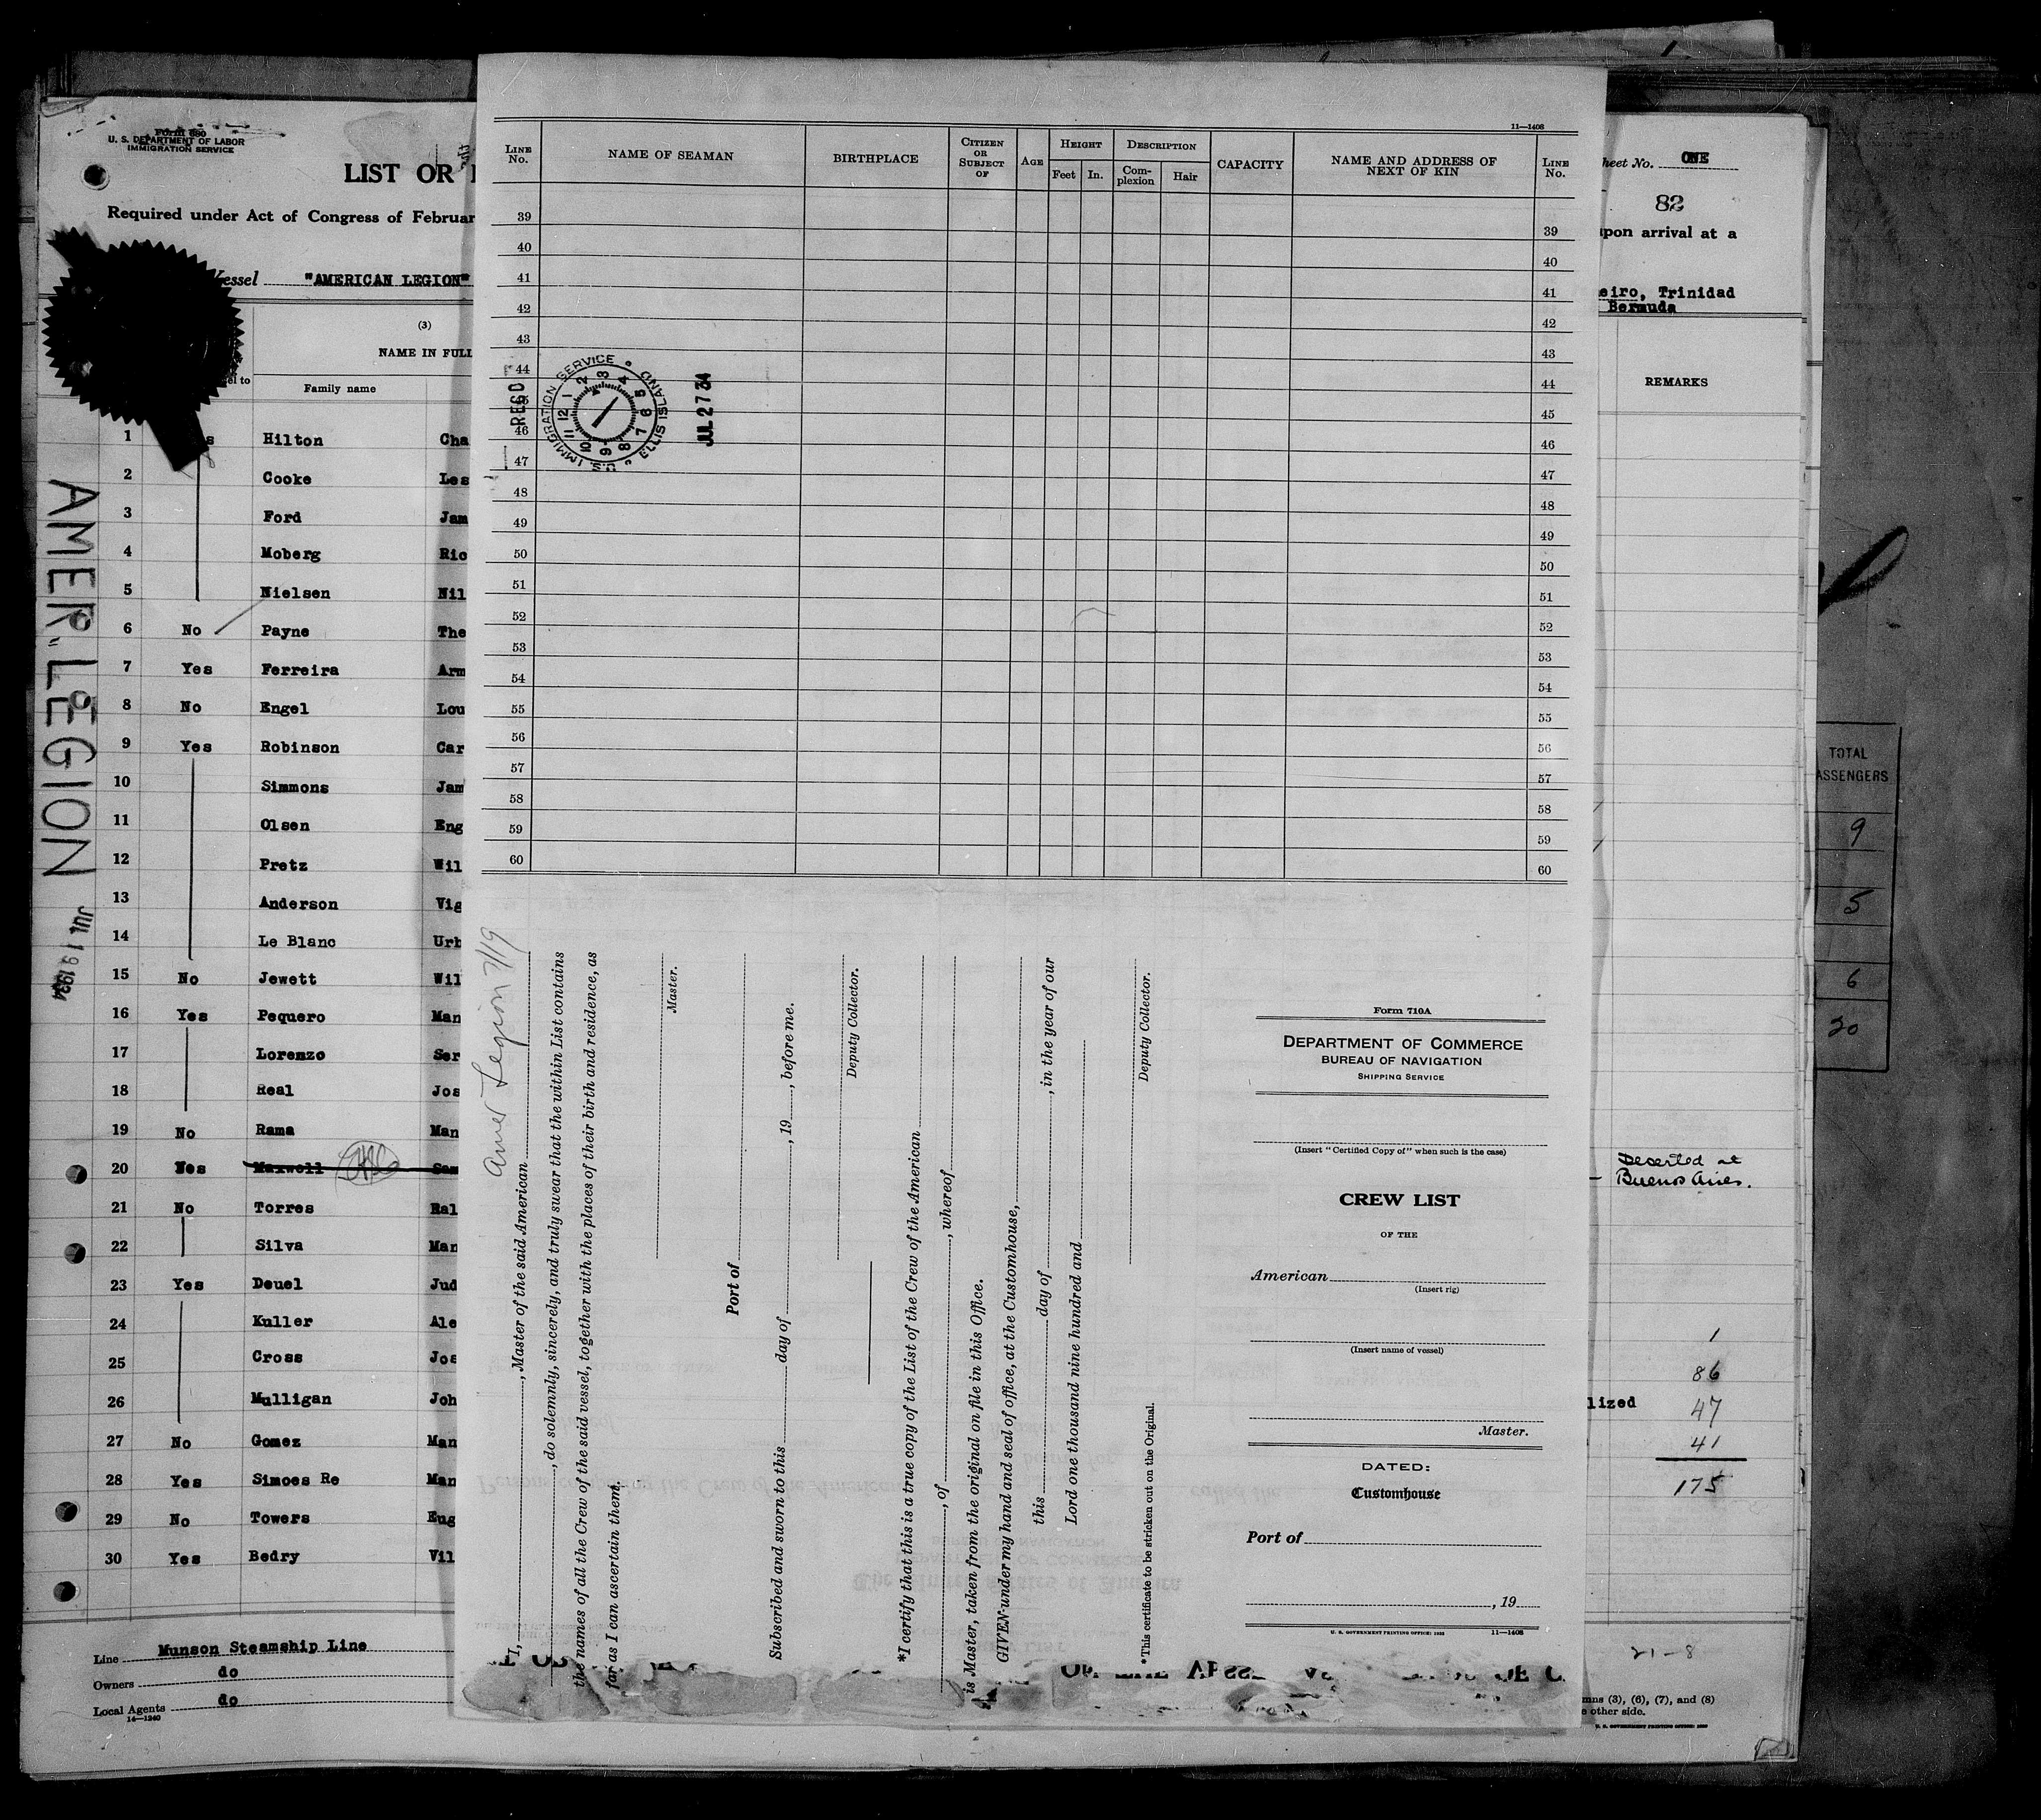 Form 680
U. S. DEPARTMENT OF LABOR
IMMIGRATION SERVICE
LIST OR
Required under Act of Congress of Februar
Vessel "AMERICAN LEGION"
(3)
NAME IN FULL
Family name
1 Hilton Cha
2 Cooke Les
3 Ford Jam
4 Moberg Ric
5 Nielsen Nil
6 No Payne The
7 Yes Ferreira Arm
8 No Engel Lou
9 Yes Robinson Car
10 Simmons Jam
11 Olsen Eng
12 Pretz Wil
13 Anderson Vig
14 Le Blanc Urb
15 No Jewett Wil
16 Yes Pequero Man
17 Lorenzo Ser
18 Real Jos
19 No Rama Man
20 Yes Maxwell Sam
21 No Torres Ral
22 Silva Man
23 Yes Deuel Jud
24 Kuller Ale
25 Cross Jos
26 Mulligan Joh
27 No Gomez Man
28 Yes Simoes Re Man
29 No Towers Eug
30 Yes Bedry Vil
Line Munson Steamship Line
Owners do
Local Agents do
14—1240
AMER. LEGION
JUL 19 1934
11—1408
LINE No. NAME OF SEAMAN BIRTHPLACE CITIZEN OR SUBJECT OF AGE HEIGHT Feet In. DESCRIPTION Complexion Hair CAPACITY NAME AND ADDRESS OF NEXT OF KIN LINE No.
39 39
40 40
41 41
42 42
43 43
44 44
45
46 46
47 47
48 48
49 49
50 50
51 51
52 52
53 53
54 54
55 55
56 56
57 57
58 58
59 59
60 60
REC'D
U.S. IMMIGRATION SERVICE • ELLIS ISLAND •
1 2 3 4 5 6 7 8 9 10 11 12
JUL 27 34
Amer Legion 7/19
I, , Master of the said American
, do solemnly, sincerely, and truly swear that the within List contains
the names of all the Crew of the said vessel, together with the places of their birth and residence, as
far as I can ascertain them.
Master.
Port of
Subscribed and sworn to this day of , 19 , before me.
Deputy Collector.
*I certify that this is a true copy of the List of the Crew of the American
, of , whereof
is Master, taken from the original on file in this Office.
GIVEN under my hand and seal of office, at the Customhouse,
this day of , in the year of our
Lord one thousand nine hundred and
Deputy Collector.
*This certificate to be stricken out on the Original.
Form 710A
DEPARTMENT OF COMMERCE
BUREAU OF NAVIGATION
SHIPPING SERVICE
(Insert "Certified Copy of" when such is the case)
CREW LIST
OF THE
American
(Insert rig)
(Insert name of vessel)
Master.
DATED:
Customhouse
Port of
, 19
U. S. GOVERNMENT PRINTING OFFICE: 11—1408
heet No. ONE
82
upon arrival at a
eiro, Trinidad
Bermuda
REMARKS
Deserted at
Buenos Aires.
1
86
lized 47
41
175
21-8
mns (3), (6), (7), and (8)
e other side.
U. S. GOVERNMENT PRINTING OFFICE
TOTAL
ASSENGERS
9
5
6
20